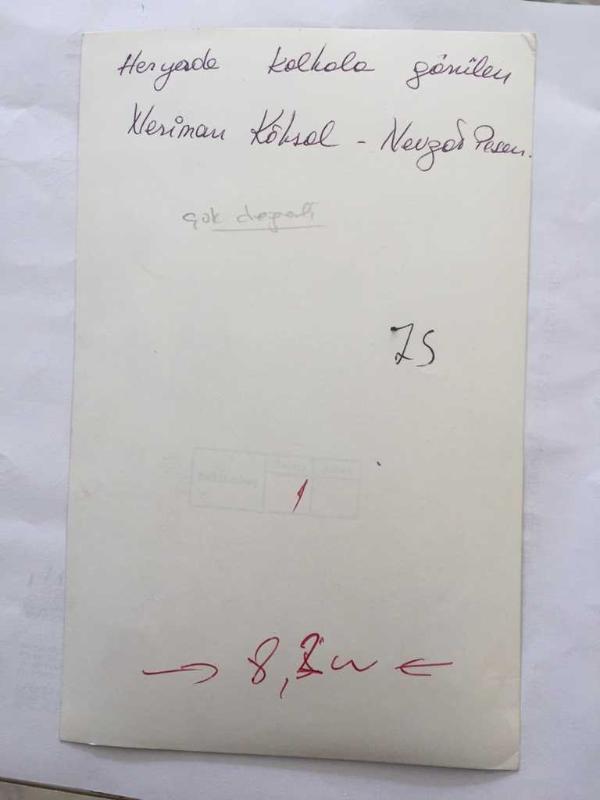 Heryerde kolkola görülen
Neriman Köksal - Nevzat Pesen.
çok
75
1
→ 8,
←